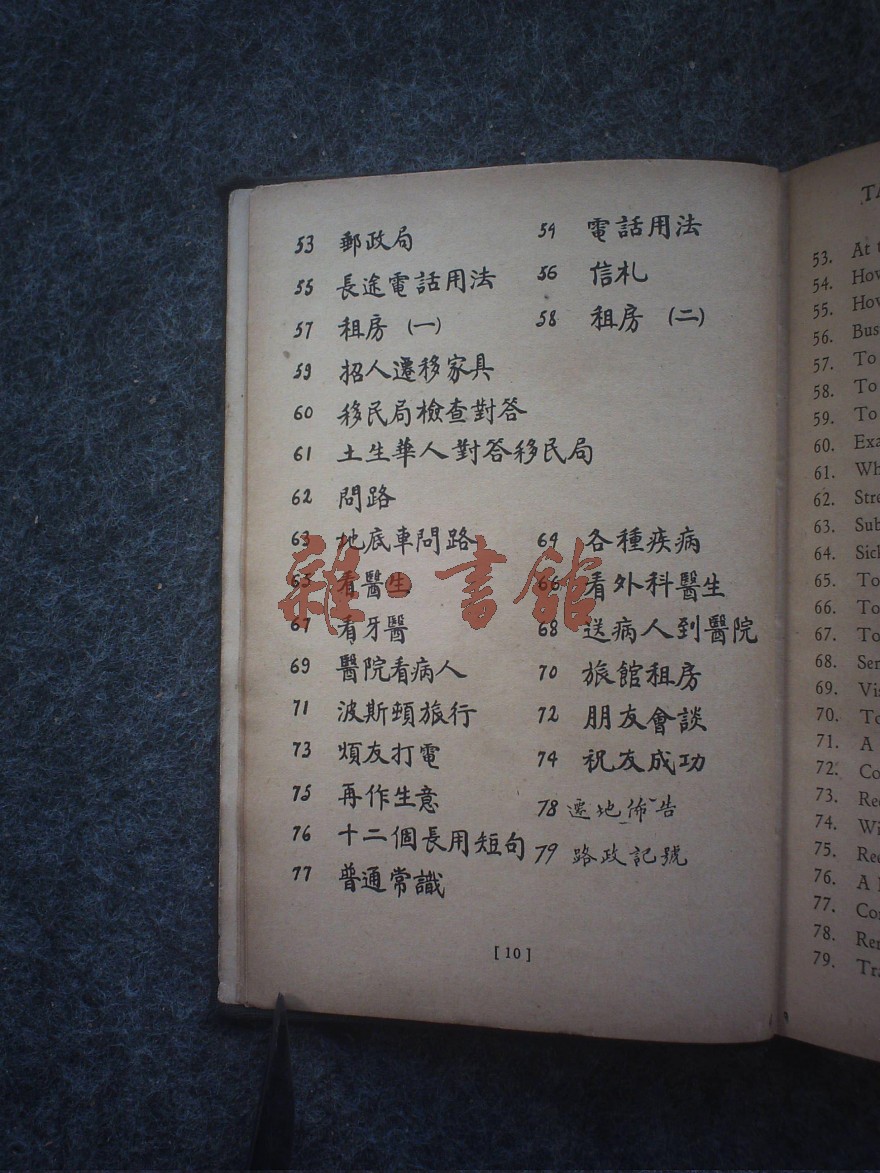 53 郵政局 54 電話用法
55 長途電話用法 56 信札
57 租房 (一) 58 租房 (二)
59 招人遷移家具
60 移民局檢查對答
61 土生華人對答移民局
62 問路
63 地底車問路 64 各種疾病
65 看醫生 66 看外科醫生
67 看牙醫 68 送病人到醫院
69 醫院看病人 70 旅館租房
71 波斯頓旅行 72 朋友會談
73 煩友打電 74 祝友成功
75 再作生意 78 遷地佈告
76 十二個長用短句 79 路政記號
77 普通常識
[10]
雜·書館
TA
53. At
54. How
55. How
56. Bus
57. To
58. To
59. To
60. Exa
61. Wh
62. Stre
63. Sub
64. Sick
65. To
66. To
67. To
68. Ser
69. Vis
70. To
71. A
72. Co
73. Rec
74. Wi
75. Ree
76. A
77. Co
78. Re
79. Tra